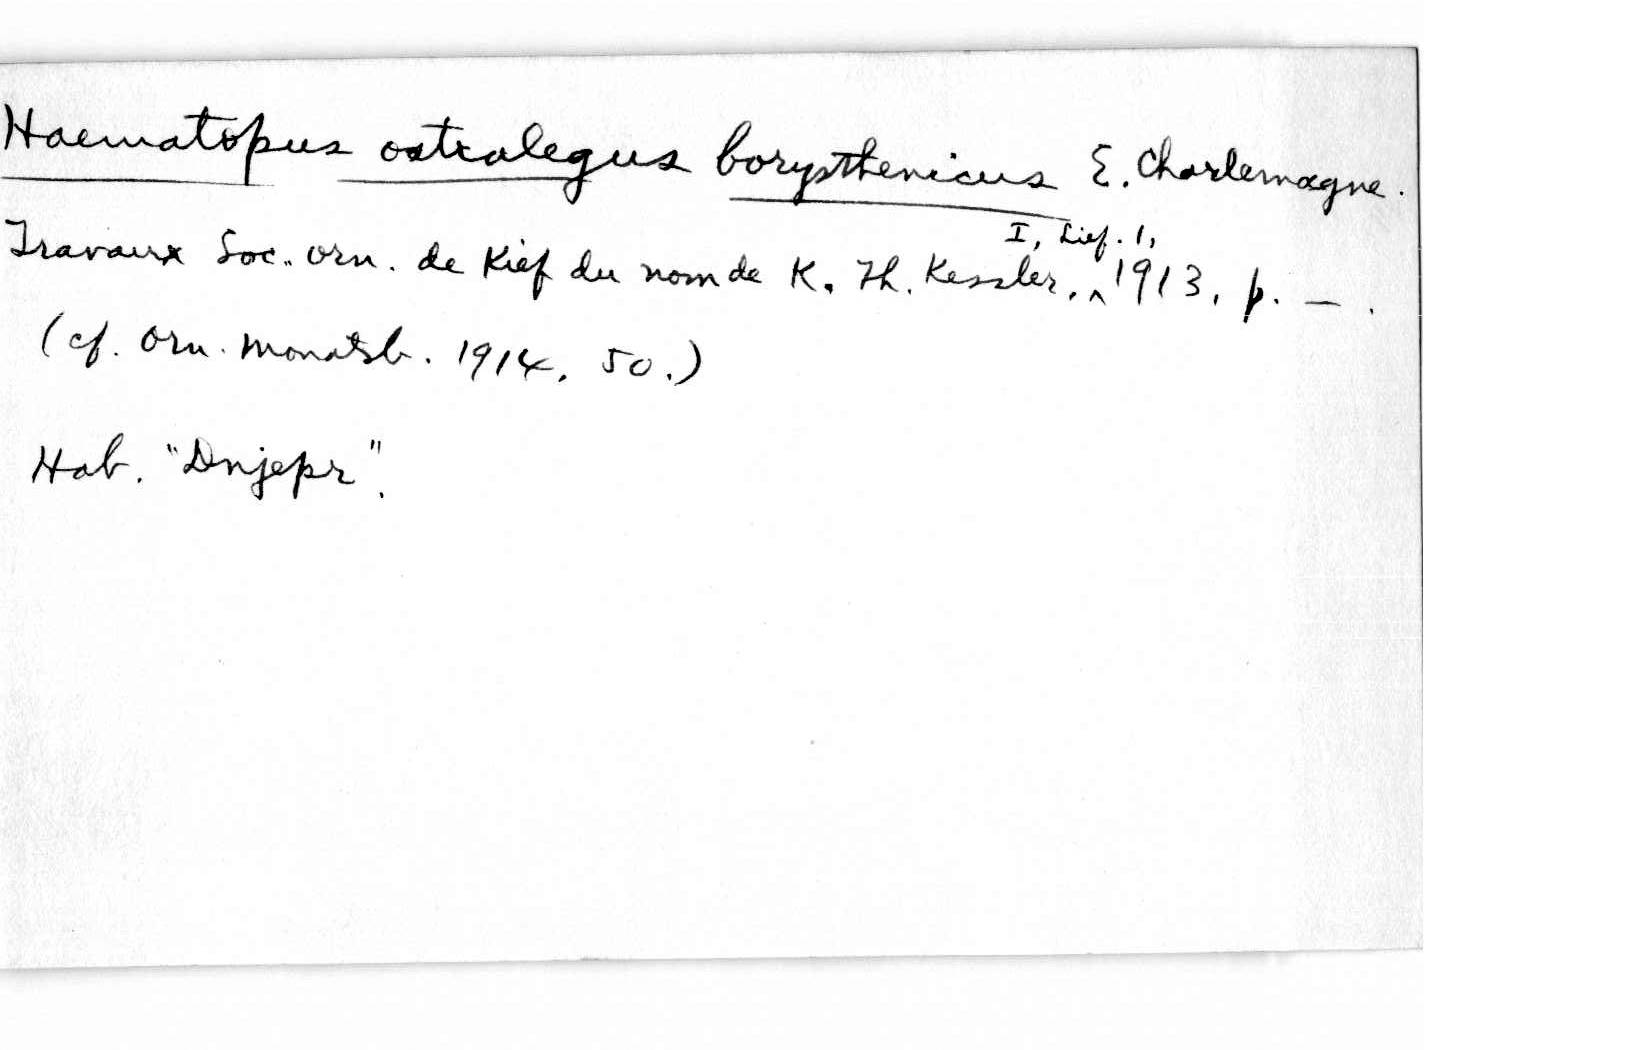 Haematopus ostralegus borysthenicus E. Charlemagne.
Travaux Soc. orn. de Kief du nom de K. Th. Kessler, ^ I, Lief. 1, 1913, p. — .
(cf. Orn. Monatsb. 1914, 50.)
Hab. "Dnjepr".